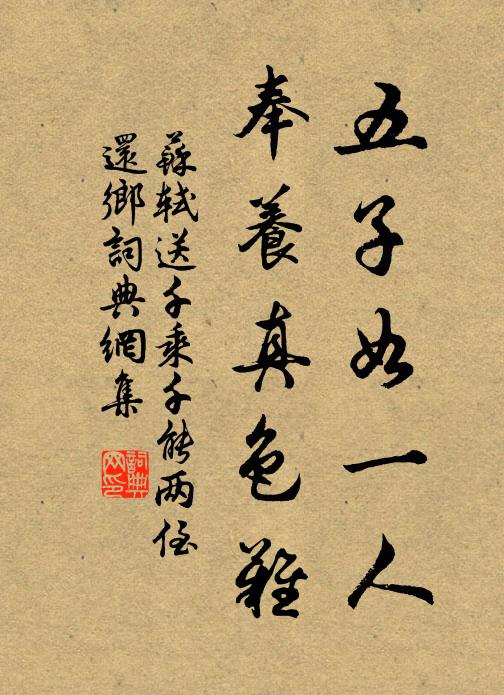 五子如一人
奉養真色難
蘇軾送千乘千能两侄
還鄉詞典網集
詞典网印